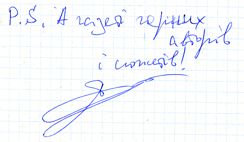 P.S. А газеті гарних
авторів
і текстів!